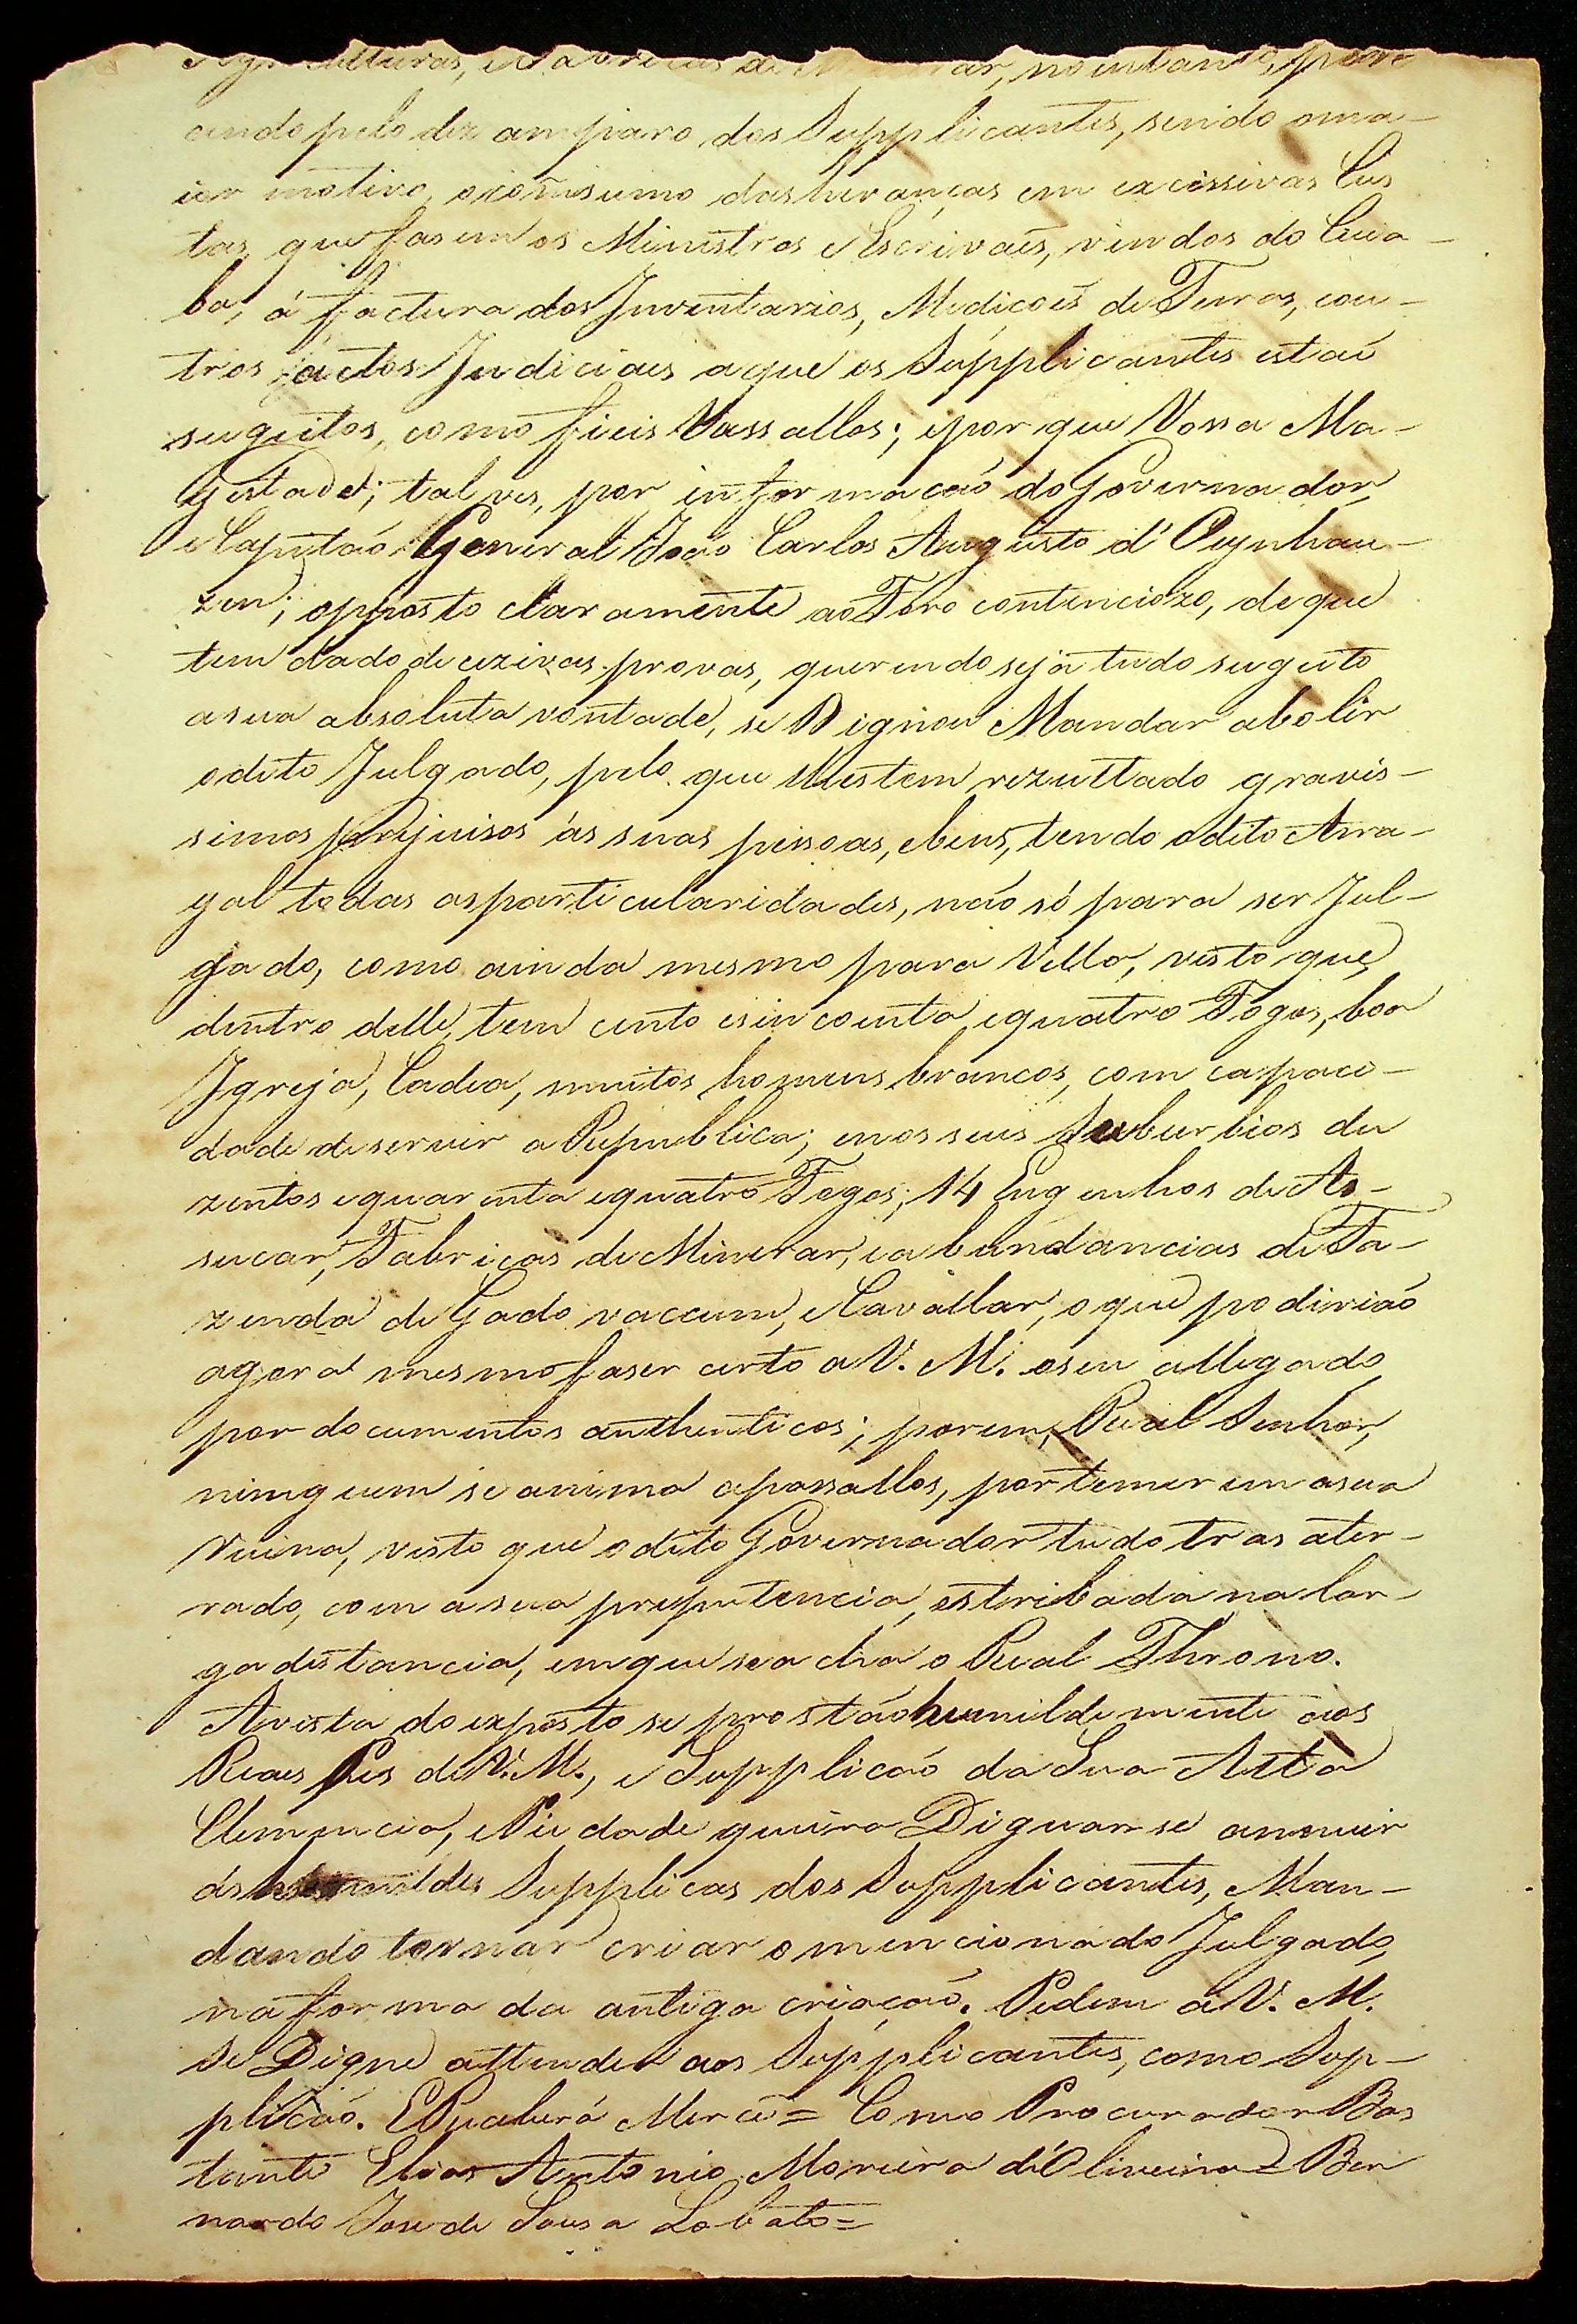 Agriculturas, e Fabricas de ar, no em tanto, pere
cendo pelo dez amparo dos Supplicantes, sendo oma-
ior motivo, o consumo das heranças em excissivas Cus
tas, que fasem os Ministros e Escrivaês, vindos do Cuia-
ba, á factura dos Inventarios, Medicoês de Terras, eou-
tros actos Judiciais aque os Supplicantes estaó
sugeitos, como fieis Vassallos; epor que Vossa Ma-
gestade; tal ves, por informacaó do Governador,
e Capitaó General Joaó Carlos Augusto d'Oeynhau-
zen; opposto claramente ao Foro contenciozo, de que
tem dado decizivas provas, querendo seja tudo sugeito
asua absoluta vontade, se Dignou Mandar abolir
odito Julgado, pelo que lhes tem rezultado gravis-
simos prejuisos ás suas pessoas, ebens, tendo odito Arra-
yal todas as particularidades, naó só para ser Jul-
gado, como ainda mesmo para Villa, visto que
dentro delle, tem cento esincoenta, equatro Fogos, boa
Igreja, Cadea, muitos homens brancos, com capaci-
dade de servir a Republica; enos seus Suburbios du
zentos equarenta equatro Fogos; 14 Engenhos de As-
sucar, Fabricas de Minerar, eabundancias de Fa-
zenda de Gado vaccum, e Cavallar, oque podiriaó
agora mesmo faser certo a V. M. oseu allegado
por documentos authenticos; porem, Real Senhor,
ninguem se anima apassallos, por temerem asua
Ruina, visto que odito Governador tudo tras ater-
rado, com asua prepotencia, estribada na lar-
ga distancia, em que sea cha o Real Throno.
Avista do exposto se prostaó humildemente aos
Reaes Pes de V. M., e Supplicaó da Sua Alta
Clemencia, e Piedade queira Dignar-se annuir
as humildes Supplicas dos Supplicantes, Man-
dando tornar criar omencionado Julgado,
na forma da antiga criacaó. Pedem a V. M.
Se Digne attender aos Supplicantes, como Sup-
plicaó. E Receberá Mercê= Como Procurador Bas
tante Elias Antonio Moreira d'Oliveira= Ber
nardo Jose de Sousa Lobato=